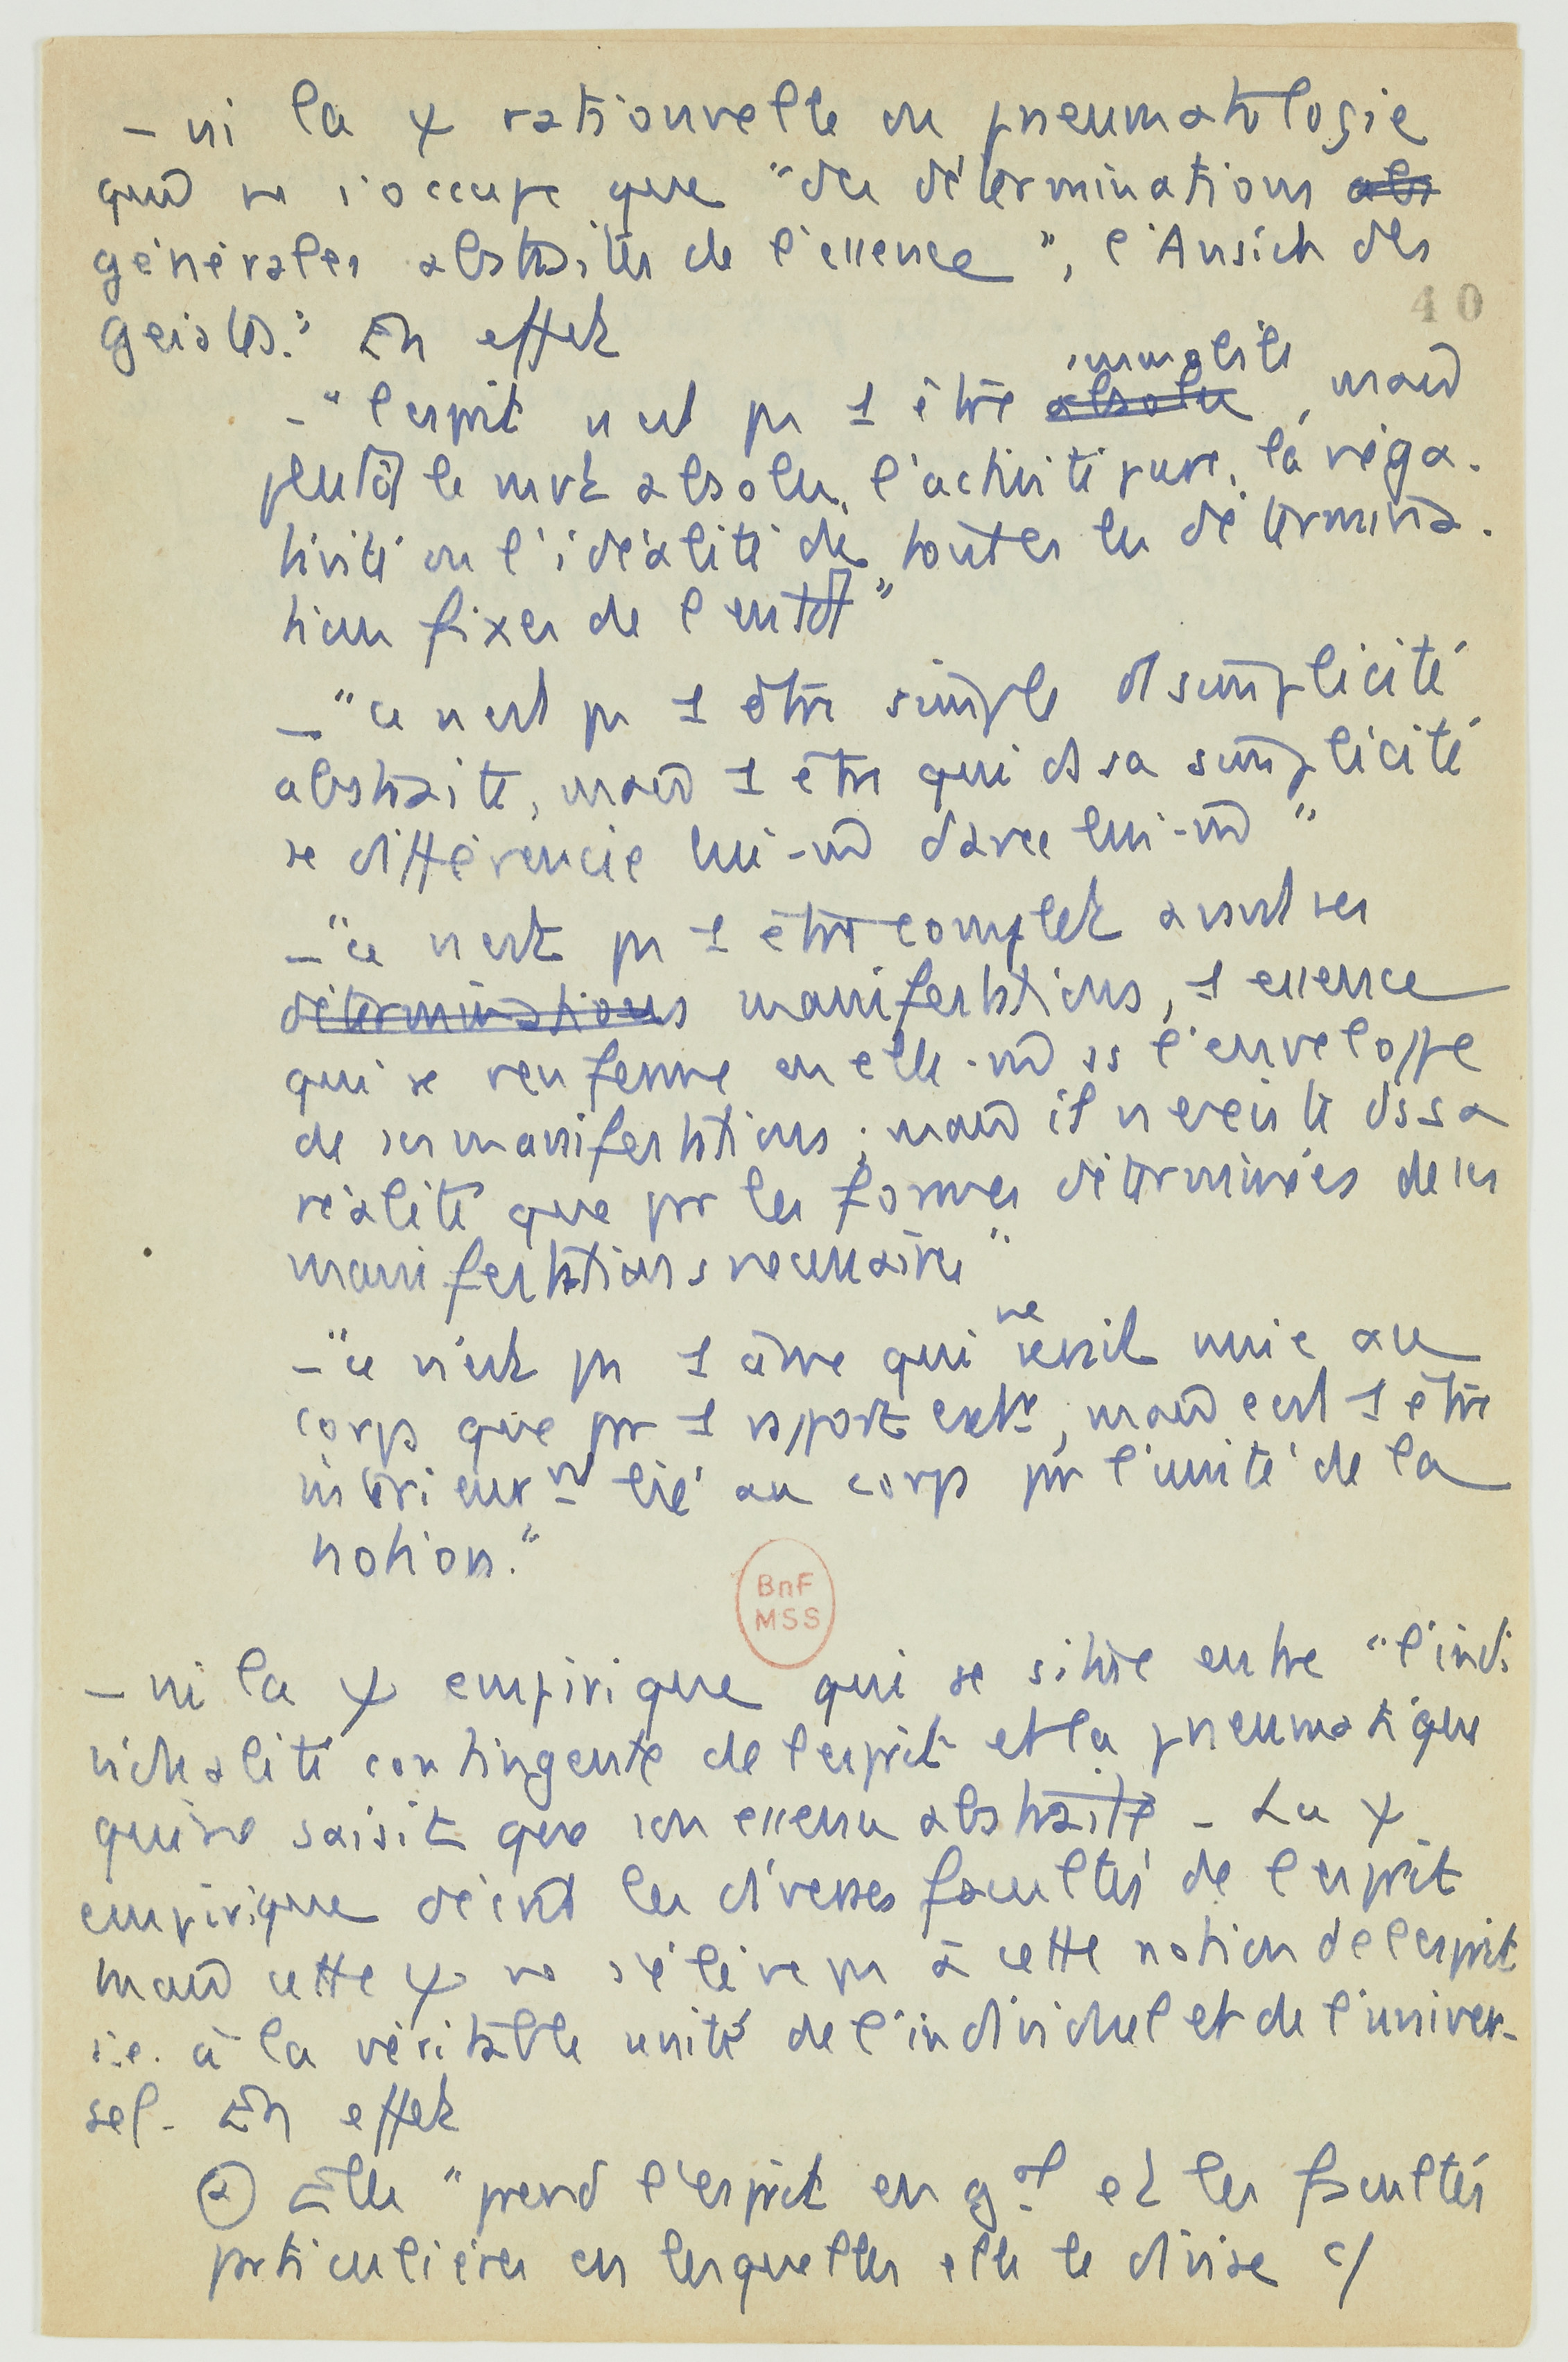 - ni la ψ rationnelle ou pneumatologie
qui ne s'occupe que "des déterminations abs
générales abstraites de l'essence", l'Ansich des
Geistes." En effet
40
- "l'esprit n'est pas 1 être absolu immobile, mais
plutôt le mvt absolu, l'activité pure, la néga-
tivité ou l'idéalité de toutes les détermina-
tions fixes de l'entdt"
- "ce n'est pas 1 être simple ds simplicité
abstraite, mais 1 être qui ds sa simplicité
se différencie lui-m̂ d'avec lui-m̂"
- "ce n'est pas 1 être complet avant ses
déterminations manifestations, 1 essence
qui se renferme en elle-m̂ ss l'enveloppe
de ses manifestations ; mais il n'existe ds sa
réalité que pr les formes déterminées de ses
manifestations nécessaires"
- "ce n'est pas 1 âme qui ne serait unie au
corps que pr 1 rapport extr, mais c'est 1 être
intérieurmt lié au corps pr l'unité de la
notion."
BnF
MSS
- ni la ψ empirique qui se situe entre "l'indi
vidualité contingente de l'esprit et la pneumatique
qui ne saisit que son essence abstraite - La ψ
empirique décrit les diverses facultés de l'esprit
mais cette ψ ne s'élève pas à cette notion de l'esprit
i.e. à la véritable unité de l'individuel et de l'univer-
sel - En effet
Elle "prend l'esprit en gal et les facultés
prticulières en lesquelles elle le divise c/